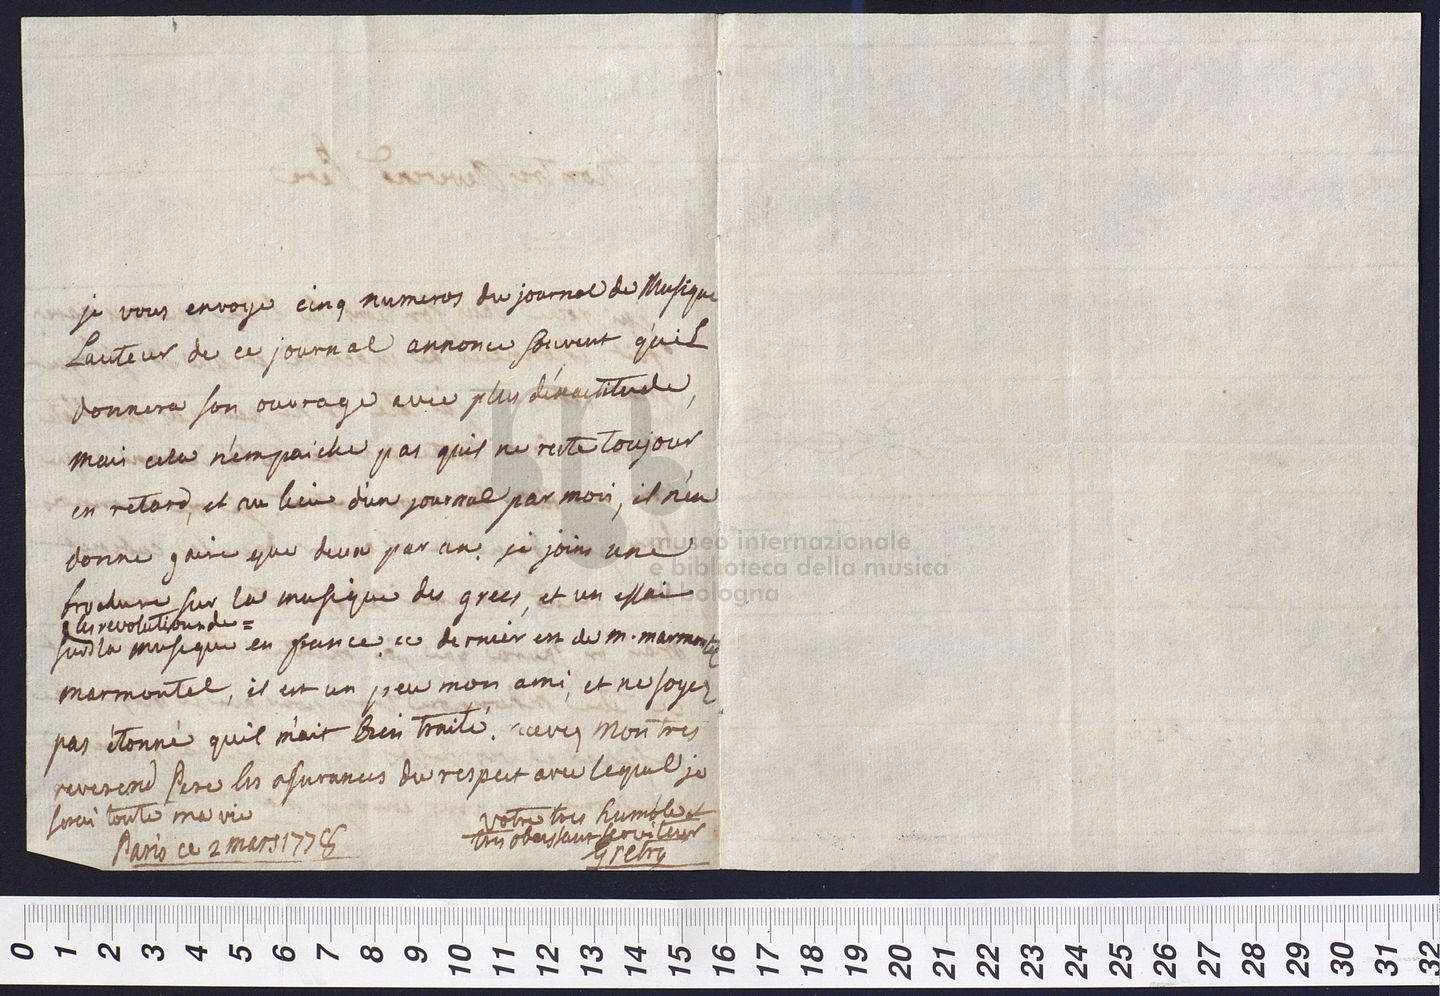 je vous envoye cinq numeros du journal de Musique
Lauteur de ce journal annonce souvent qu'il
donnera son ouvrage avec plus d'éxactitude,
mais cela n'empaiche pas quil ne reste toujour
en retard, et au lieu d'un journal par mois, il n'en
donne gaire que deux par an. je joins une
brochure sur la musique des grecs, et un essai
les revolutions de =
sur la musique en france. ce dernier est de m. marmontel
marmontel, il est un peu mon ami, et ne soyez
pas étonné quil m'ait bien traité. recevez Mon tres
reverend Pere les assurances du respect avec lequel je
serai toute ma vie
votre tres humble et
tres obeissant serviteur
Gretry
Paris ce 2 mars 1778
museo internazionale
e biblioteca della musica
di bologna
0 1 2 3 4 5 6 7 8 9 10 11 12 13 14 15 16 17 18 19 20 21 22 23 24 25 26 27 28 29 30 31 32